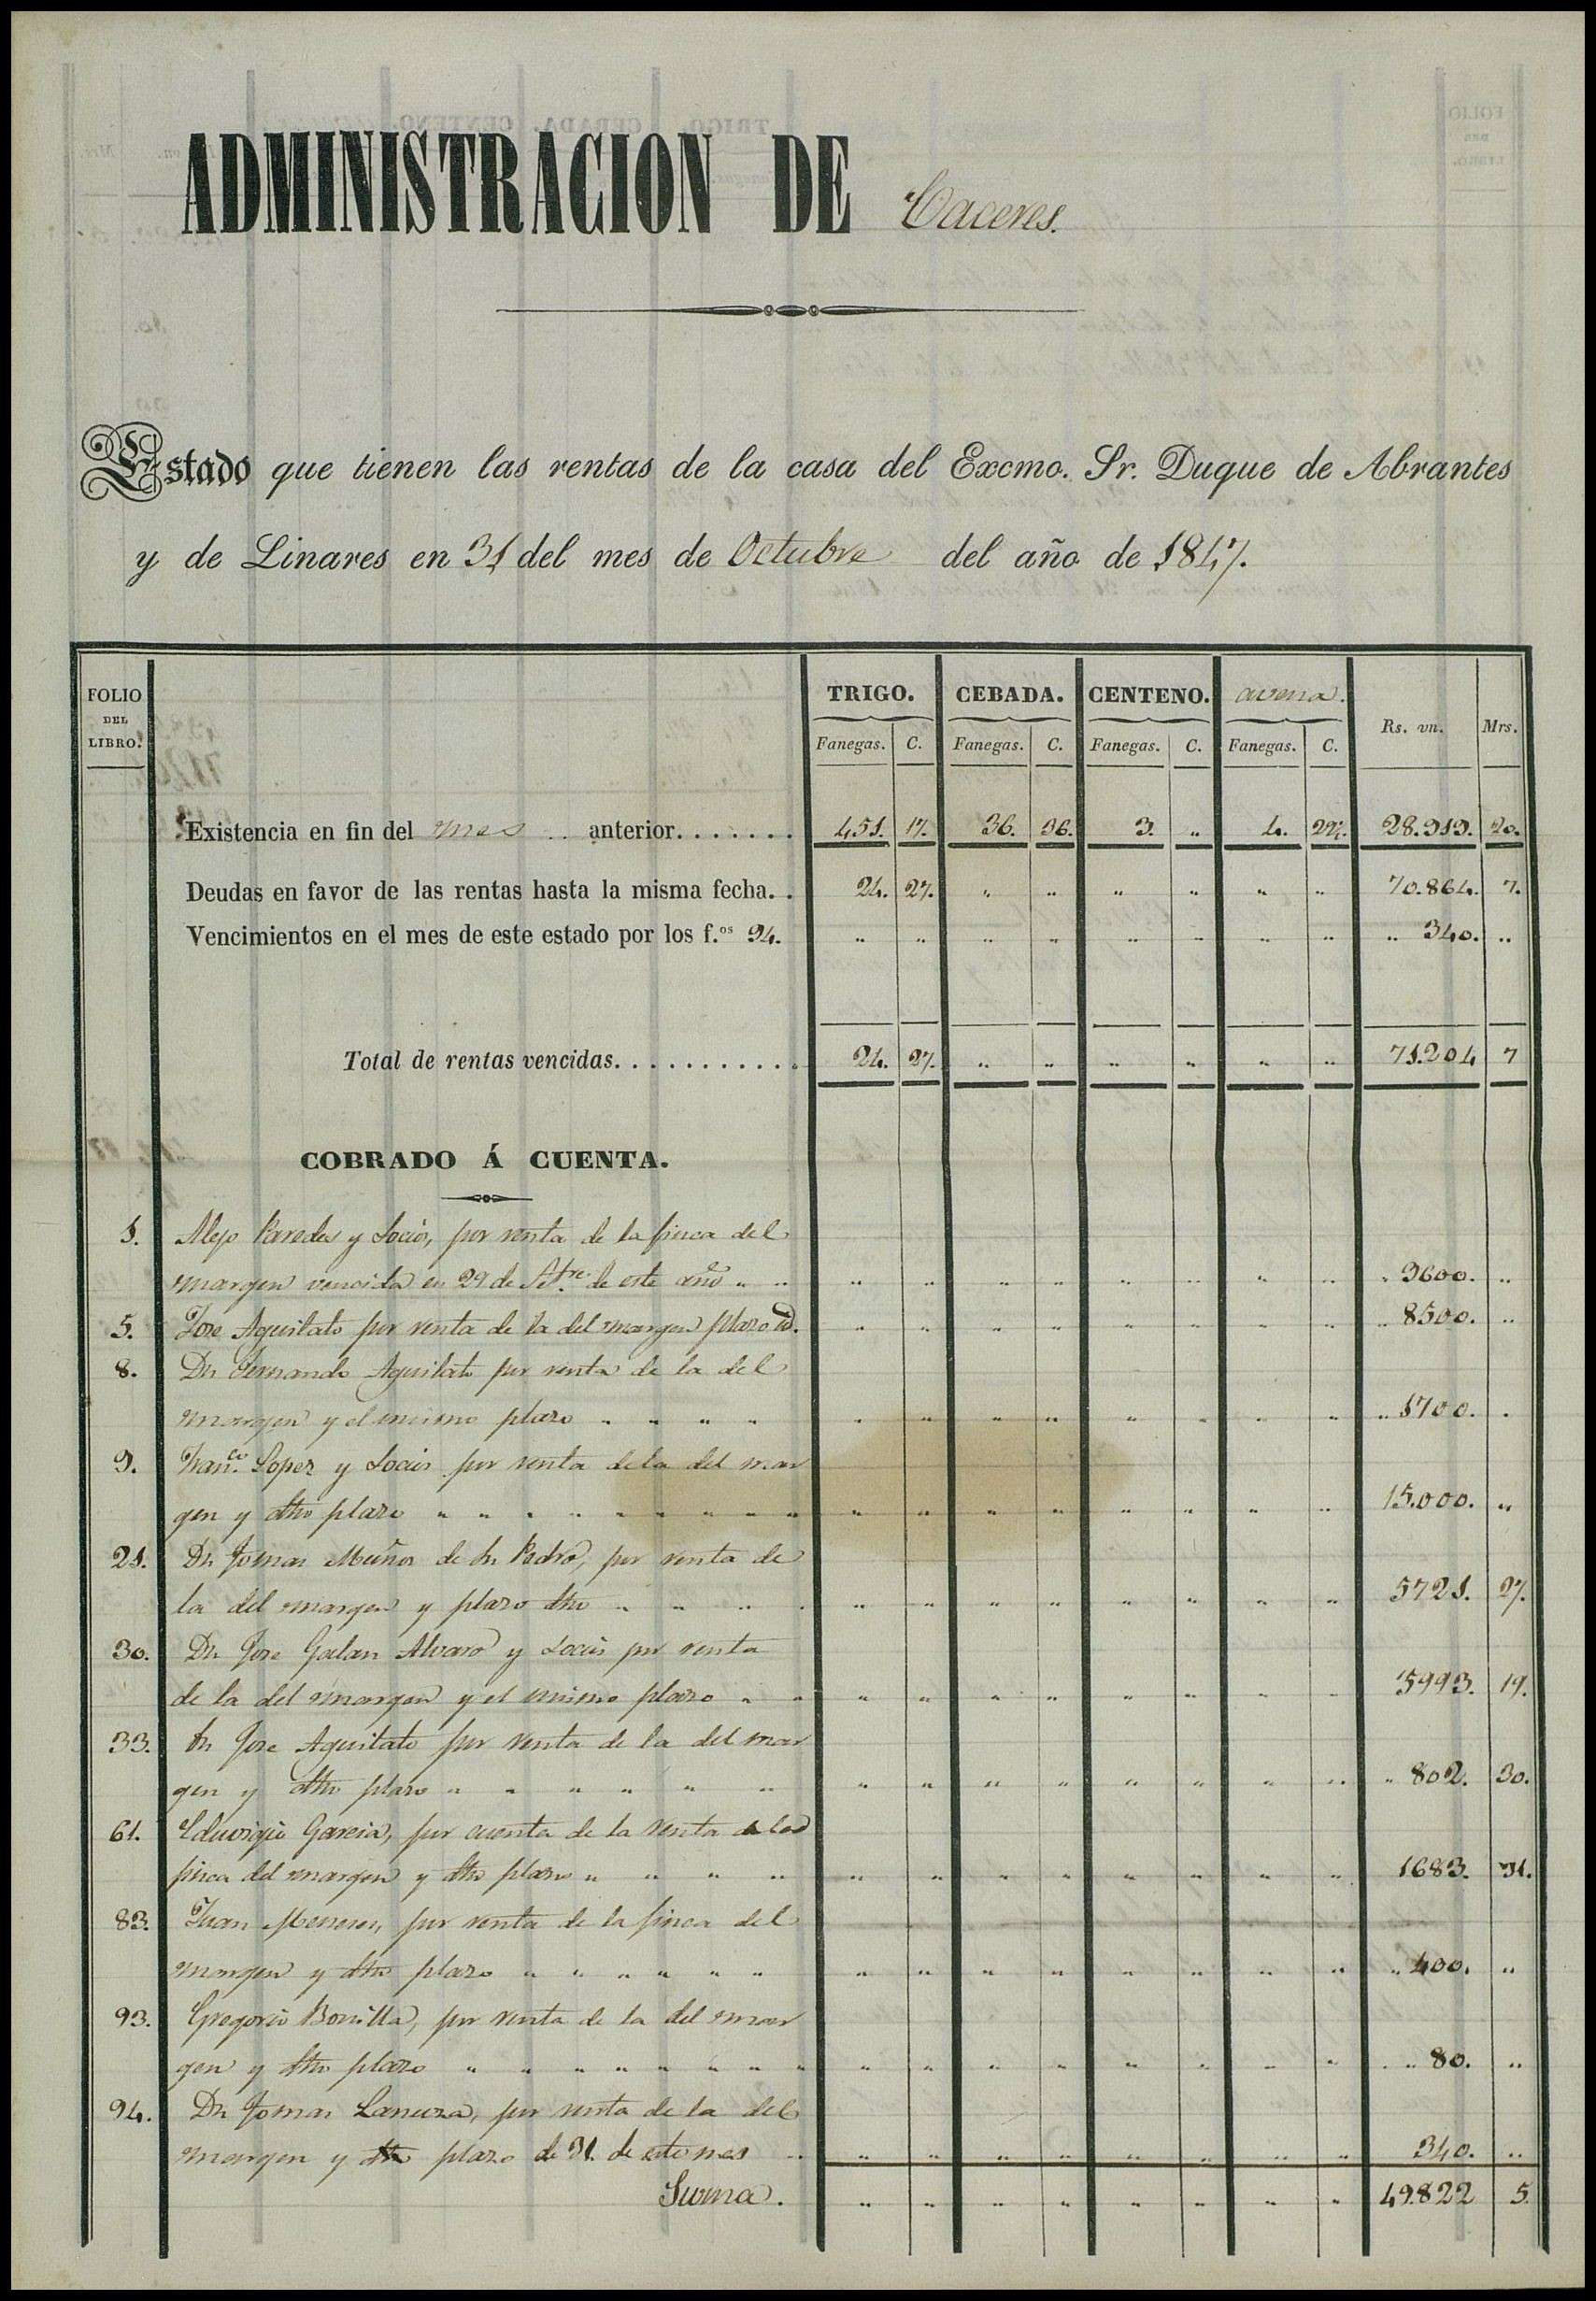 ADMINISTRACION DE Caceres.
Estado que tienen las rentas de la casa del Excmo. Sr. Duque de Abrantes
y de Linares en 31 del mes de Octubre del año de 1847.
FOLIO DEL LIBRO. TRIGO. CEBADA. CENTENO. avena. Rs. vn. Mrs.
Fanegas. C. Fanegas. C. Fanegas. C. Fanegas. C.
Existencia en fin del mes .. anterior....... 451. 17. 36. 36. 3. " 4. 22. 28.919. 20.
Deudas en favor de las rentas hasta la misma fecha.. 24. 27. " " " " " " 70.864. 7.
Vencimientos en el mes de este estado por los f.os 94. " " " " " " " " " 340. "
Total de rentas vencidas........... 24. 27. " " " " " " 71.204 7
COBRADO Á CUENTA.
1. Alejo Paredes y Socio, por renta de la finca del
margen vencida en 29 de Stre. de este año " " " " " " " " " " " 9600. "
5. Jose Aguilato por renta de la del margen plazo id. " " " " " " " " " 8500. "
8. Dn Fernando Aguilato por renta de la del
margen y el mismo plazo " " " " " " " " " " " " " 1700. .
9. Franco. Lopez y Socio por renta de la del mar
gen y dho plazo " " " " " " " " " " " " " " " " " 15.000. "
21. Dn Tomas Muñoz de Sn Pedro, por renta de
la del margen y plazo dho " " " " " " " " " " " " 5721. 27.
30. Dn Jose Galan Alvaro y Socio por renta
de la del margen y el mismo plazo " " " " " " " " " " 5993. 19.
33. Dn Jose Aguilato por renta de la del mar
gen y dho plazo " " " " " " " " " " " " " " " 802. 30.
61. Eduvigio Garcia, por cuenta de la renta de la
finca del margen y dho plazo " " " " " " " " " " " " 1683. 31.
83. Juan Meneses, por renta de la finca del
margen y dho plazo " " " " " " " " " " " " " " " 400. "
93. Gregorio Bonilla, por renta de la del mar
gen y dho plazo " " " " " " " " " " " " " " " " " 80. "
94. Dn Tomas Lanuza, por renta de la del
margen y dho plazo de 31. de este mes " " " " " " " " " 340. "
Suma. " " " " " " " " 49.822 5.